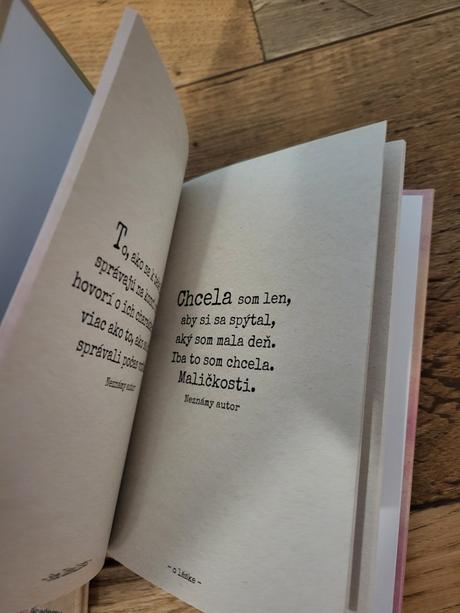 To, ako sa k tebe
správajú na konci
hovorí o ich charakte
viac ako to, ako sa
správali počas
Neznámy autor
Chcela som len,
aby si sa spýtal,
aký som mala deň.
Iba to som chcela.
Maličkosti.
Neznámy autor
- o láske -